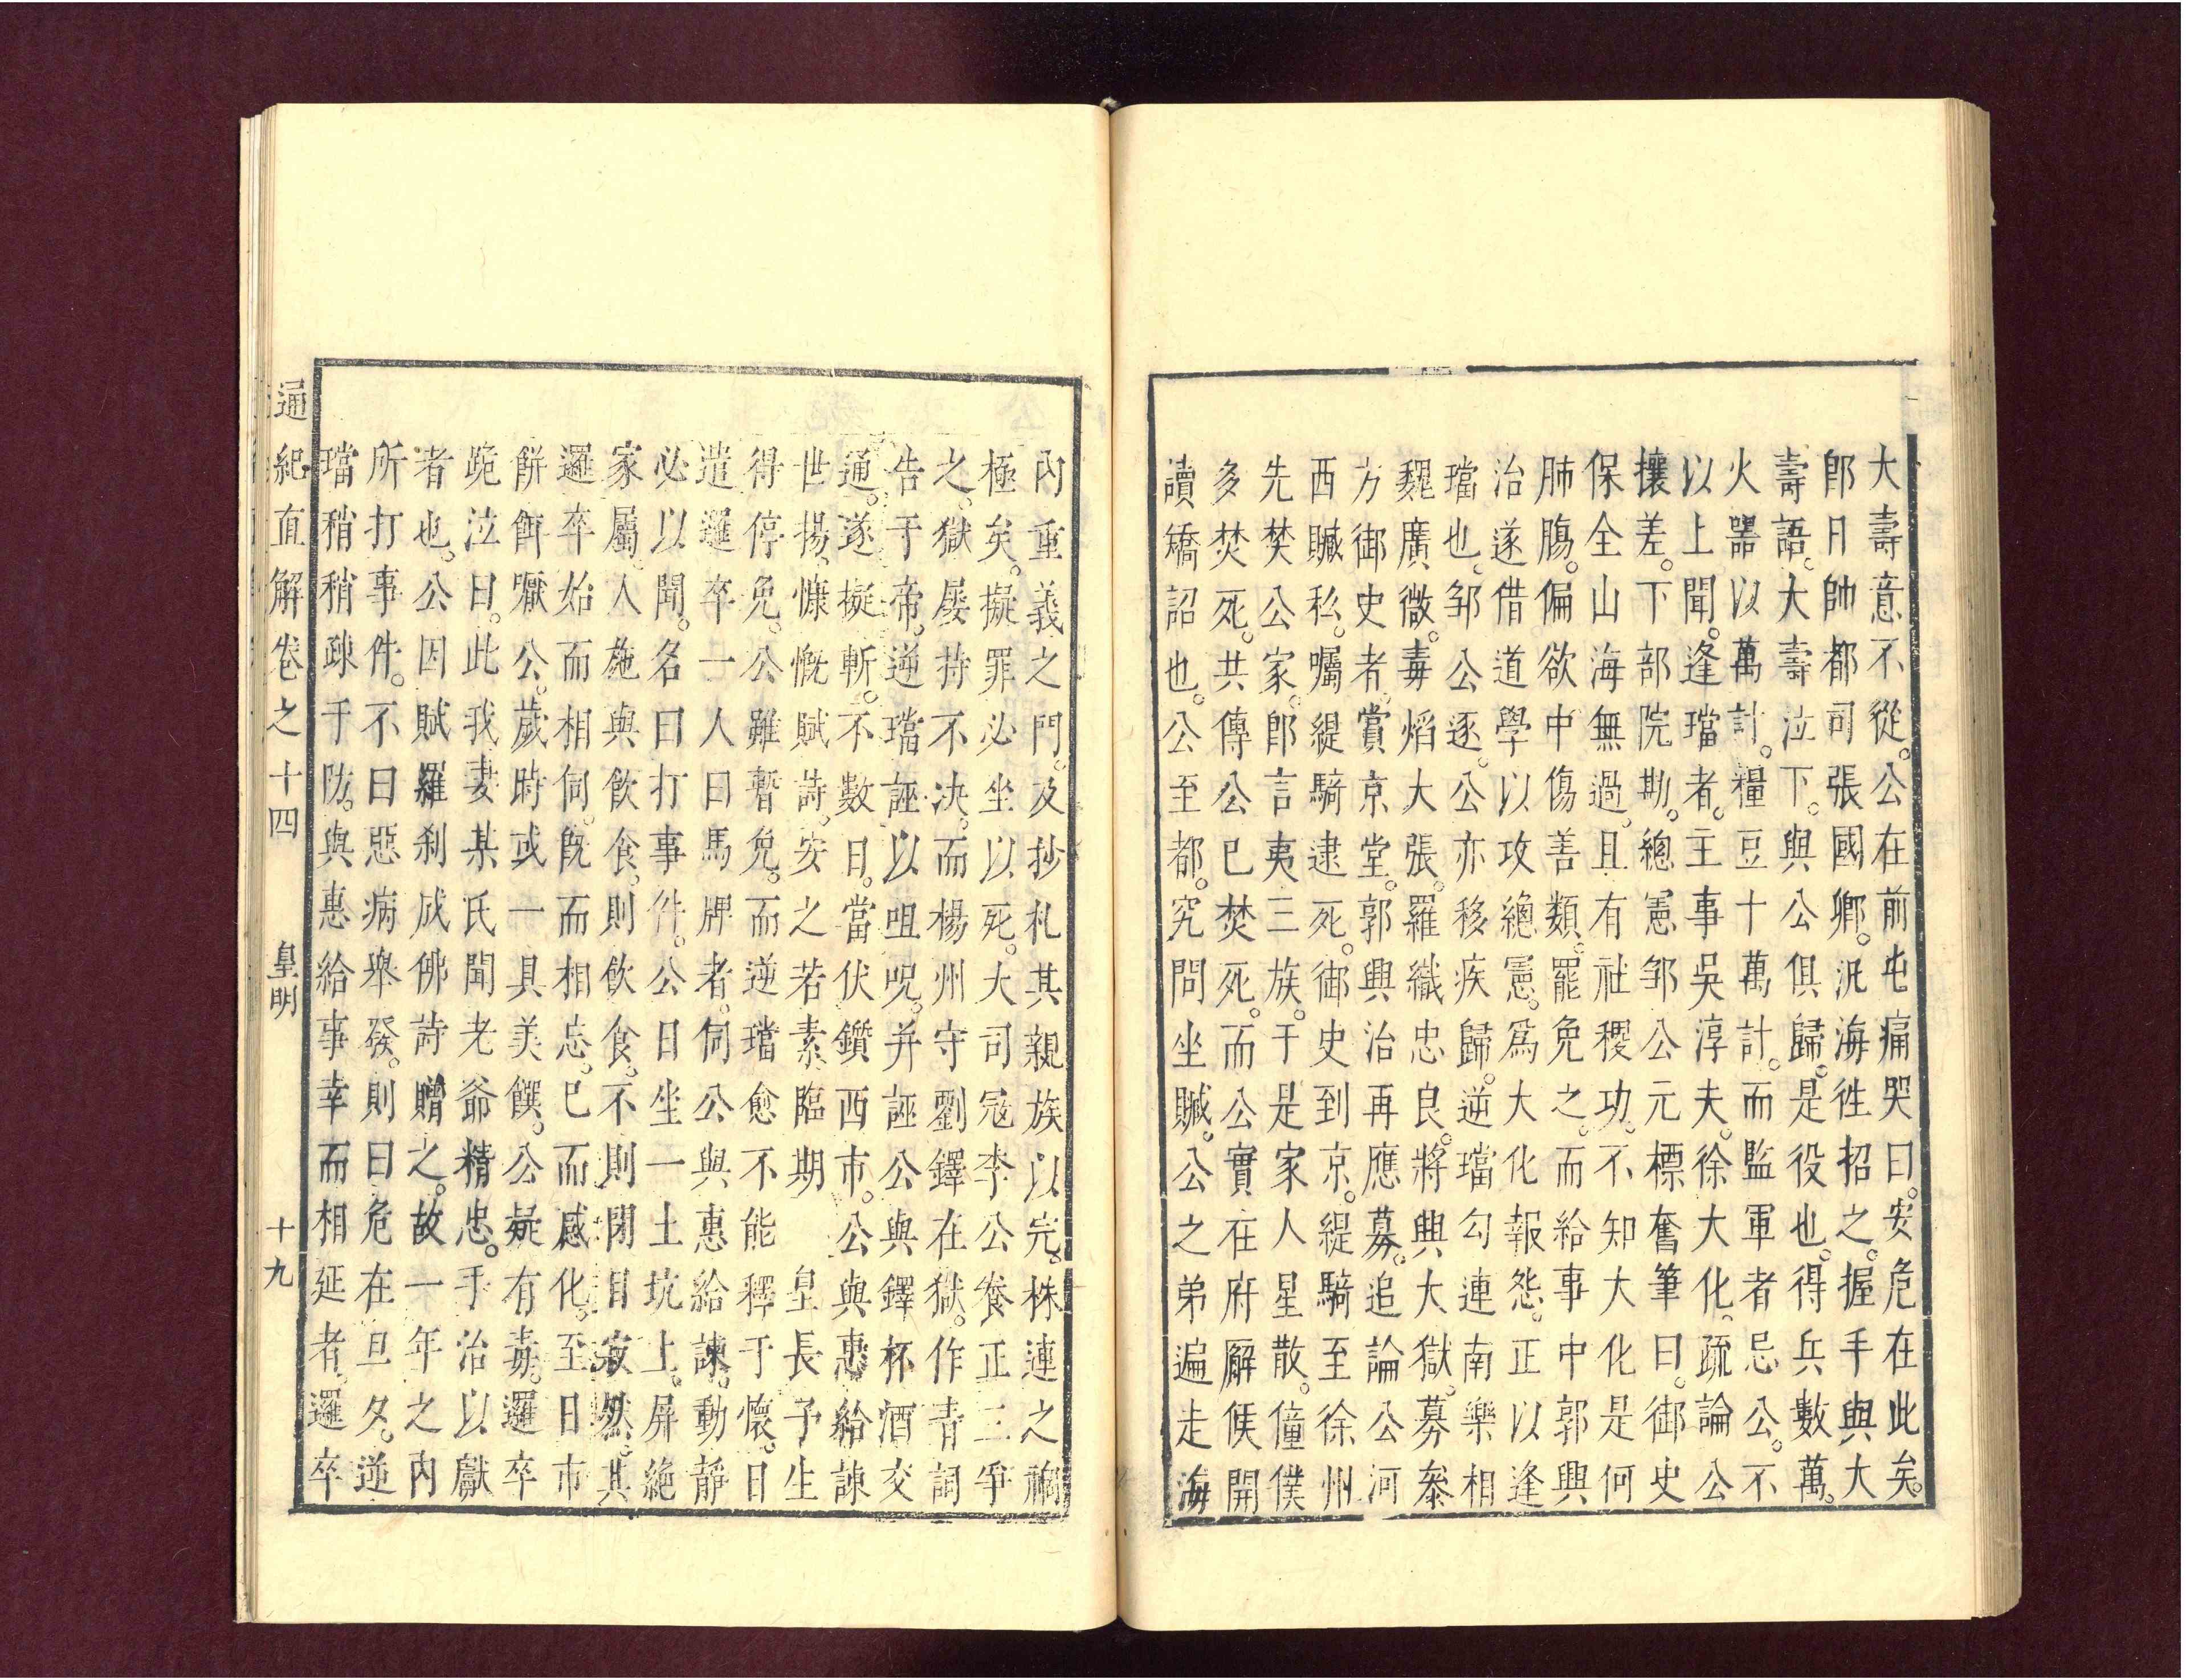 大壽意不從。公在前屯痛哭曰。安危在此矣。
卽日帥都司張國卿。汎海徃招之。握手與大
壽語。大壽泣下。與公俱歸。是役也。得兵數萬。
火器以萬計。糧豆十萬計。而監軍者忌公。不
以上聞。逢璫者。主事吳淳夫。徐大化。疏論公
攘差。下部院勘。總憲邹公元標奮筆曰。御史
保全山海無過。且有社稷功。不知大化是何
肺腸。偏欲中傷善類。罷免之。而給事中郭興
治遂借道學以攻總憲。爲大化報怨。正以逢
璫也。邹公逐。公亦移疾歸。逆璫勾連南樂相
魏廣微。毒焰大張。羅織忠良。將興大獄。募叅
方御史者。賞京堂。郭興治再應募。追論公河
西贓私。囑緹騎逮死。御史到京。緹騎至徐州
先焚公家。卽言夷三族。于是家人星散。僮僕
多焚死。共傳公已焚死。而公實在府廨候開
讀矯詔也。公至都。究問坐贓。公之弟遍走海
內重義之門。及抄札其親族以完。株連之禍
極矣。擬罪必坐以死。大司冦李公養正三爭
之。獄屡持不决。而楊州守劉鐸在獄。作青詞
告于帝。逆璫誣以咀呪。并誣公與鐸杯酒交
通。遂擬斬。不數日。當伏鑕西市。公與惠給諌
世揚。慷慨賦詩。安之若素。臨期　皇長子生
得停免。公雖暫免。而逆璫愈不能釋于懷。日
遣邏卒一人曰馬牌者。伺公與惠給諌。動静
必以聞。名曰打事件。公日坐一土坑上。屏絶
家屬。人施與飲食。則飲食。不則閉目寂然。其
邏卒始而相伺。旣而相忘。已而感化。至日市
餅餌囐公。歲時或一具美饌。公疑有毒。邏卒
跪泣曰。此我妻某氏聞老爺精忠。手治以獻
者也。公因賦羅刹成佛詩贈之。故一年之內
所打事件。不曰惡病舉發。則曰危在旦夕。逆
璫稍稍疎于防。與惠給事幸而相延者。邏卒
通紀直解卷之十四　皇明　十九